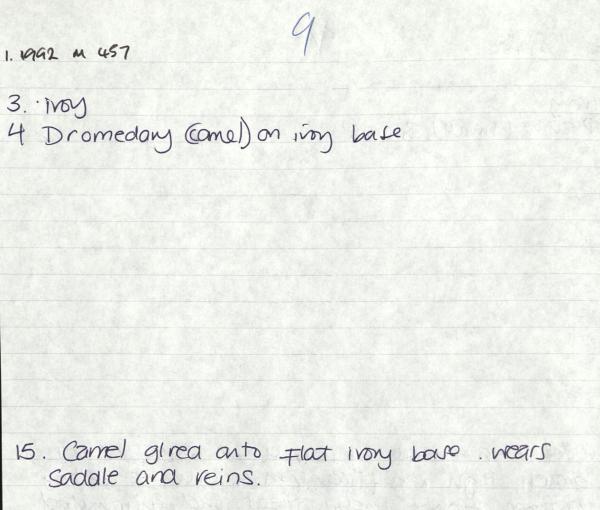 9
1. 1992 M 457
3. ivory
4 Dromedary (camel) on ivory base
15. Camel glued onto flat ivory base. wears
saddle and reins.